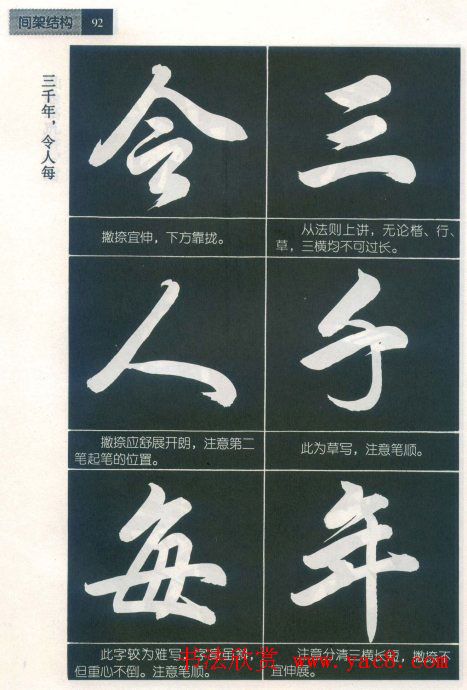 间架结构 92
三千年，令人每
三
从法则上讲，无论楷、行、
草，三横均不可过长。
千
此为草写，注意笔顺。
年
注意分清三横长短，撇捺不
宜伸展。
令
撇捺宜伸，下方靠拢。
人
撇捺应舒展开朗，注意第二
笔起笔的位置。
每
此字较为难写，字身虽斜，
但重心不倒。注意笔顺。
书法欣赏 www.yac8.com